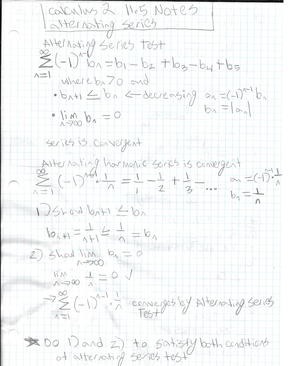 calculus 2 11.5 Notes
alternating series
Alternating Series Test
∞
Σ (-1)ⁿ⁻¹ bn = b1 - b2 + b3 - b4 + b5
n=1
where bn > 0 and
• bn+1 ≤ bn ← decreasing an = (-1)ⁿ⁻¹ bn
bn = |an|
• lim bn = 0
n→∞
series is convergent
Alternating harmonic series is convergent
∞
Σ (-1)ⁿ⁻¹ · 1/n = 1/1 - 1/2 + 1/3 - ... an = (-1)ⁿ⁻¹ 1/n
n=1 bn = 1/n
1) Show bn+1 ≤ bn
bn+1 = 1/n+1 ≤ 1/n = bn
2) show lim bn = 0
n→∞
lim 1/n = 0 ✓
n→∞
∞
→ Σ (-1)ⁿ⁻¹ · 1/n converges by Alternating Series
n=1 Test
* Do 1) and 2) to satisfy both conditions
of alternating series test